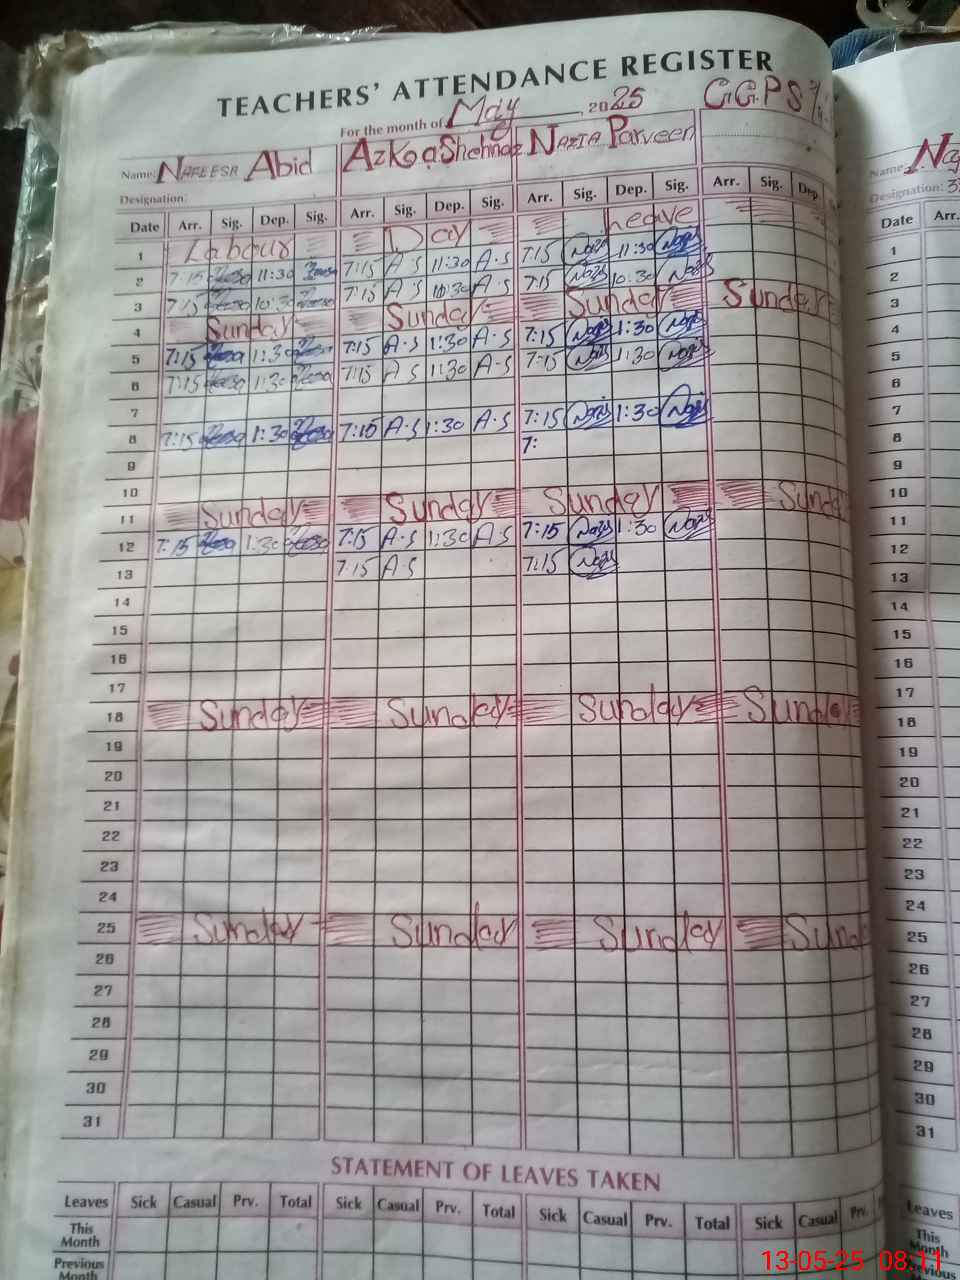 TEACHERS' ATTENDANCE REGISTER
For the month of May 2025 G.G.P.S
Name: NAFEESA Abid Azkoa Shehnaz NAZIA Parveen
Designation:
Date Arr. Sig. Dep. Sig. Arr. Sig. Dep. Sig. Arr. Sig. Dep. Sig. Arr. Sig. Dep.
1 Labour Day Leave
2 7:15 11:30 7:15 A.S 11:30 A.S 7:15 Nazia 11:30 Nazia
3 7:15 10:30 7:15 A.S 10:30 A.S 7:15 Nazia 10:30 Nazia
4 Sunday Sunday Sunday Sunday
5 7:15 1:30 7:15 A.S 1:30 A.S 7:15 Nazia 1:30 Nazia
6 7:15 1:30 7:15 A.S 1:30 A.S 7:15 Nazia 1:30 Nazia
7
8 7:15 1:30 7:15 A.S 1:30 A.S 7:15 Nazia 1:30 Nazia
9 7:
10
11 Sunday Sunday Sunday Sunday
12 7:15 1:30 7:15 A.S 1:30 A.S 7:15 Nazia 1:30 Nazia
13 7:15 A.S 7:15 Nazia
14
15
16
17
18 Sunday Sunday Sunday Sunday
19
20
21
22
23
24
25 Sunday Sunday Sunday Sund
26
27
28
29
30
31
STATEMENT OF LEAVES TAKEN
Leaves Sick Casual Prv. Total Sick Casual Prv. Total Sick Casual Prv. Total Sick Casual Prv.
This Month
Previous Month
Name:
Designation:
Date Arr.
1
2
3
4
5
6
7
8
9
10
11
12
13
14
15
16
17
18
19
20
21
22
23
24
25
26
27
28
29
30
31
Leaves
This Month
Previous
13-05-25 08:11